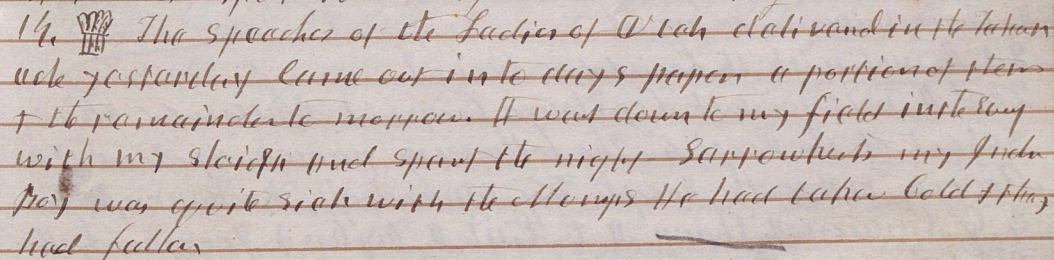 14. The speaches of the Ladies of Utah deliverd in the Tabern
acle yesterday Came out in to days paper a portion of them
& the remainder to morrow. I went down to my field in the Evng
with my sleigh and spent the night Sarrowfuls my Indn
Boy was quite sick with the Mumps He had taken Cold & they
had fallen